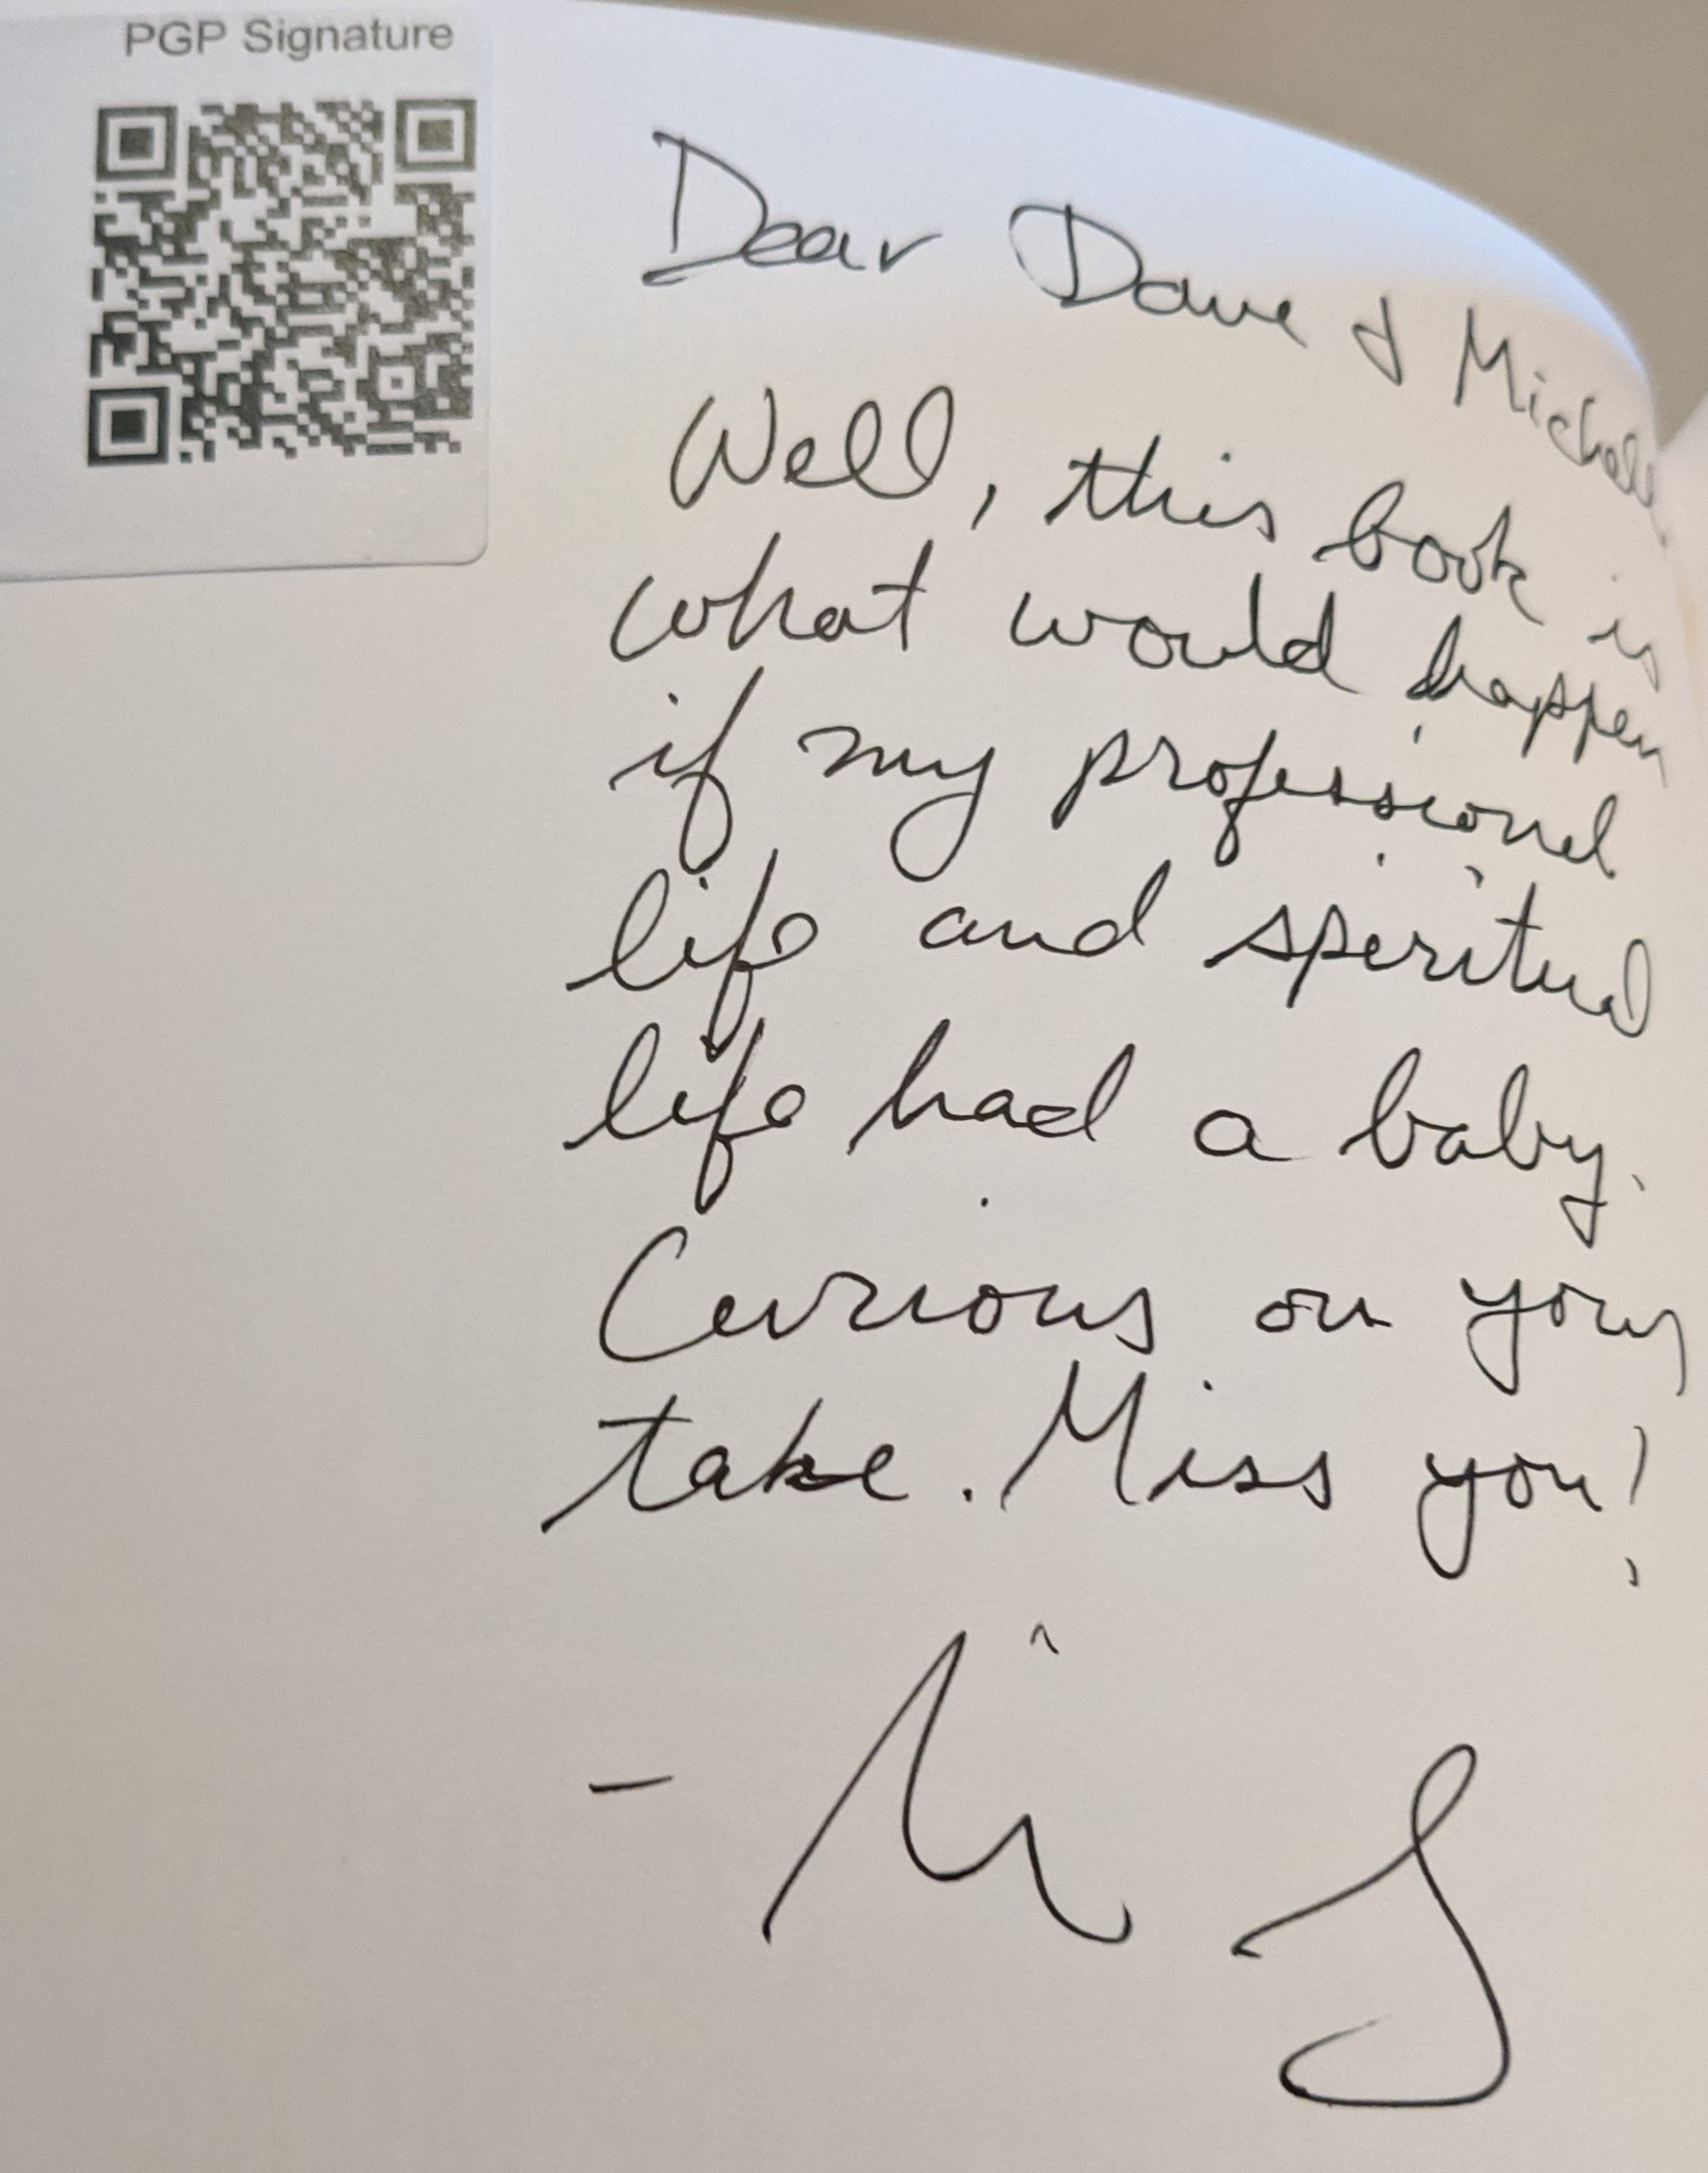 PGP Signature
Dear Dave & Michele,
Well, this book is
what would happen
if my professional
life and spiritual
life had a baby.
Curious on your
take. Miss you!